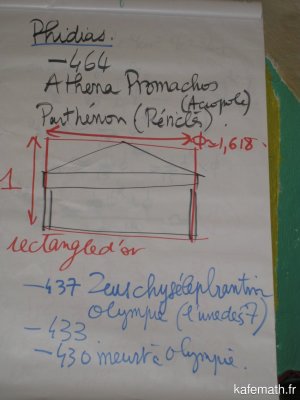 Phidias.
-464
Athena Promachos
(Acropole)
Parthénon (Périclès).
Φ≈1,618.
1
rectangle d'or
-437 Zeus chryséléphantin
Olympie (l'une des 7)
-433
-430 meurt à Olympie.
kafemath.fr